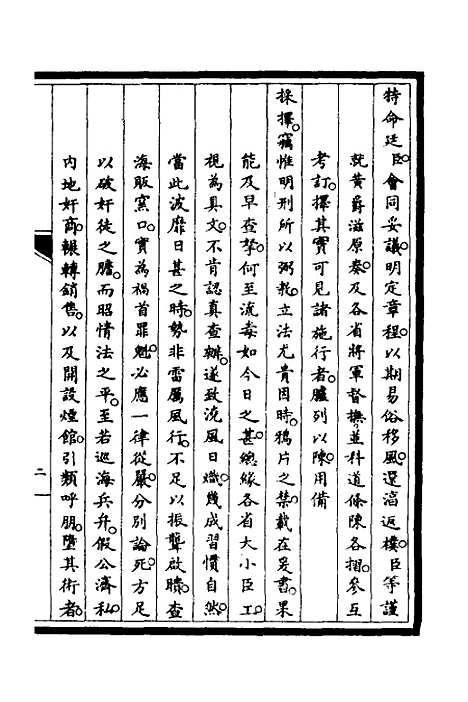 特命廷臣會同妥議明定章程以期易俗移風還滀返樸臣等謹
就黃爵滋原奏及各省將軍督撫並科道條陳各摺參互
考訂擇其實可見諸施行者臚列以陳用備
採擇竊惟明刑所以弼教立法尤貴因時鴉片之禁載在爰書果
能及早查拏何至流毒如今日之甚總緣各省大小臣工
視為具文不肯認真查辦遂致流風日熾幾成習慣自然
當此波靡日甚之時勢非雷厲風行不足以振聾啟矇查
海販窯口實為禍首罪魁必應一律從嚴分別論死方足
以破奸徒之膽而昭情法之平至若巡海兵弁假公濟私
內地奸商輾轉銷售以及開設煙館引類呼朋墮其術者
二一